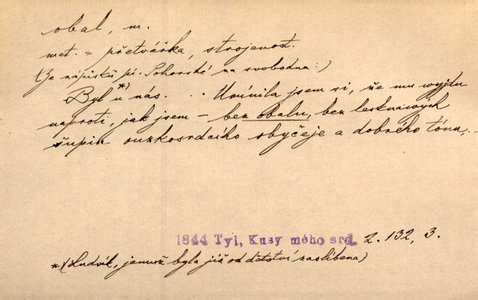 obal, m.
met. = přetvářka, strojenost.
(Ze zápisků pí. Pohorské na svobodna:)
Byl*) u nás. ... Umínila jsem si, že mu vyjdu
naproti, jak jsem – bez obalu, bez lesknavých
šupin outkosrdcího obyčeje a dobrého tónu, ..
1844 Tyl, Kusy mého srd. 2. 132, 3.
*(Ludvík, jemuž byla již od dětství zaslíbena)